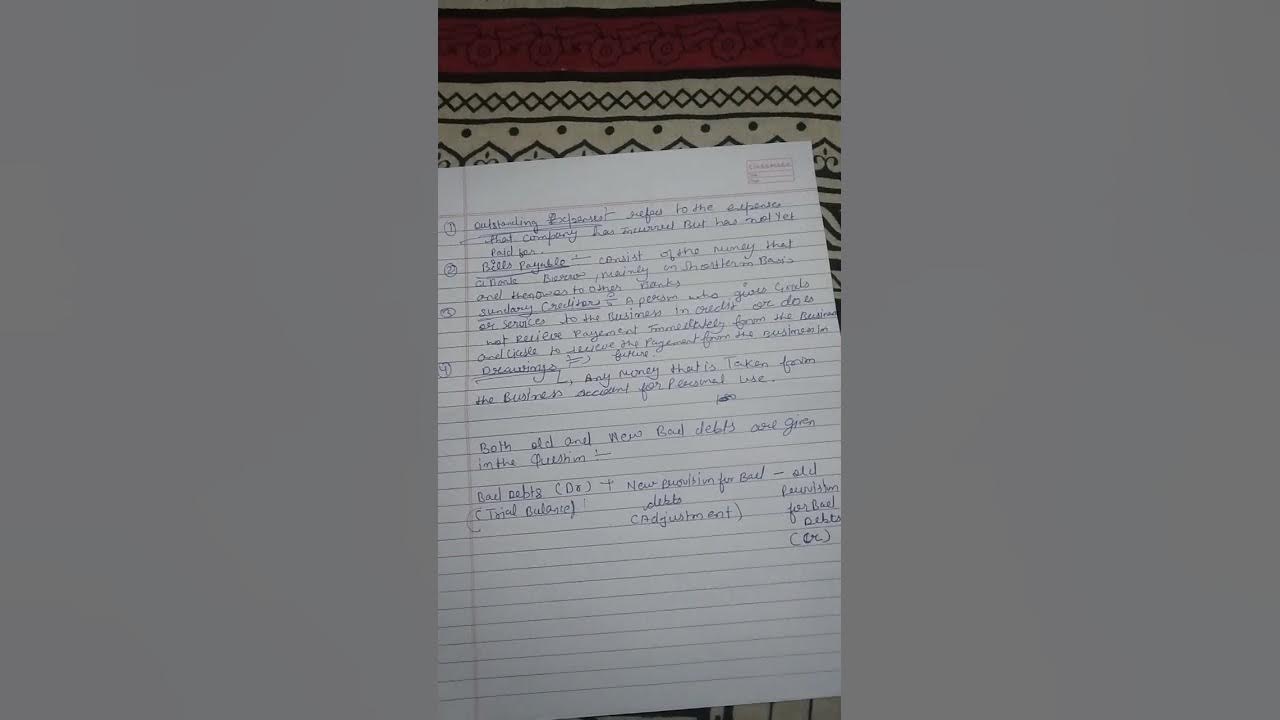 classmate
① Outstanding Expenses' refers to the expense
that company has incurred But has not Yet
Paid for.
② Bills Payable :- consist of the money that
a Bank Borrow, mainly on Shortterm Basis
and then owes to other Banks
③ Sundary Creditors :- A person who gives Goods
or services to the Business in credit or does
not recieve Payement Immediately from the Business
and liable to recieve the Payement from the Business in
future.
④ Drawings :-
↳ Any money that is Taken form
the Business account for Personal use.
Both old and New Bad debts are given
in the Question :-
Bad Debts (Dr) + New provision for Bad – old
(Trial Balance) debts Provision
(Adjustment) for Bad
Debts
(Cr)